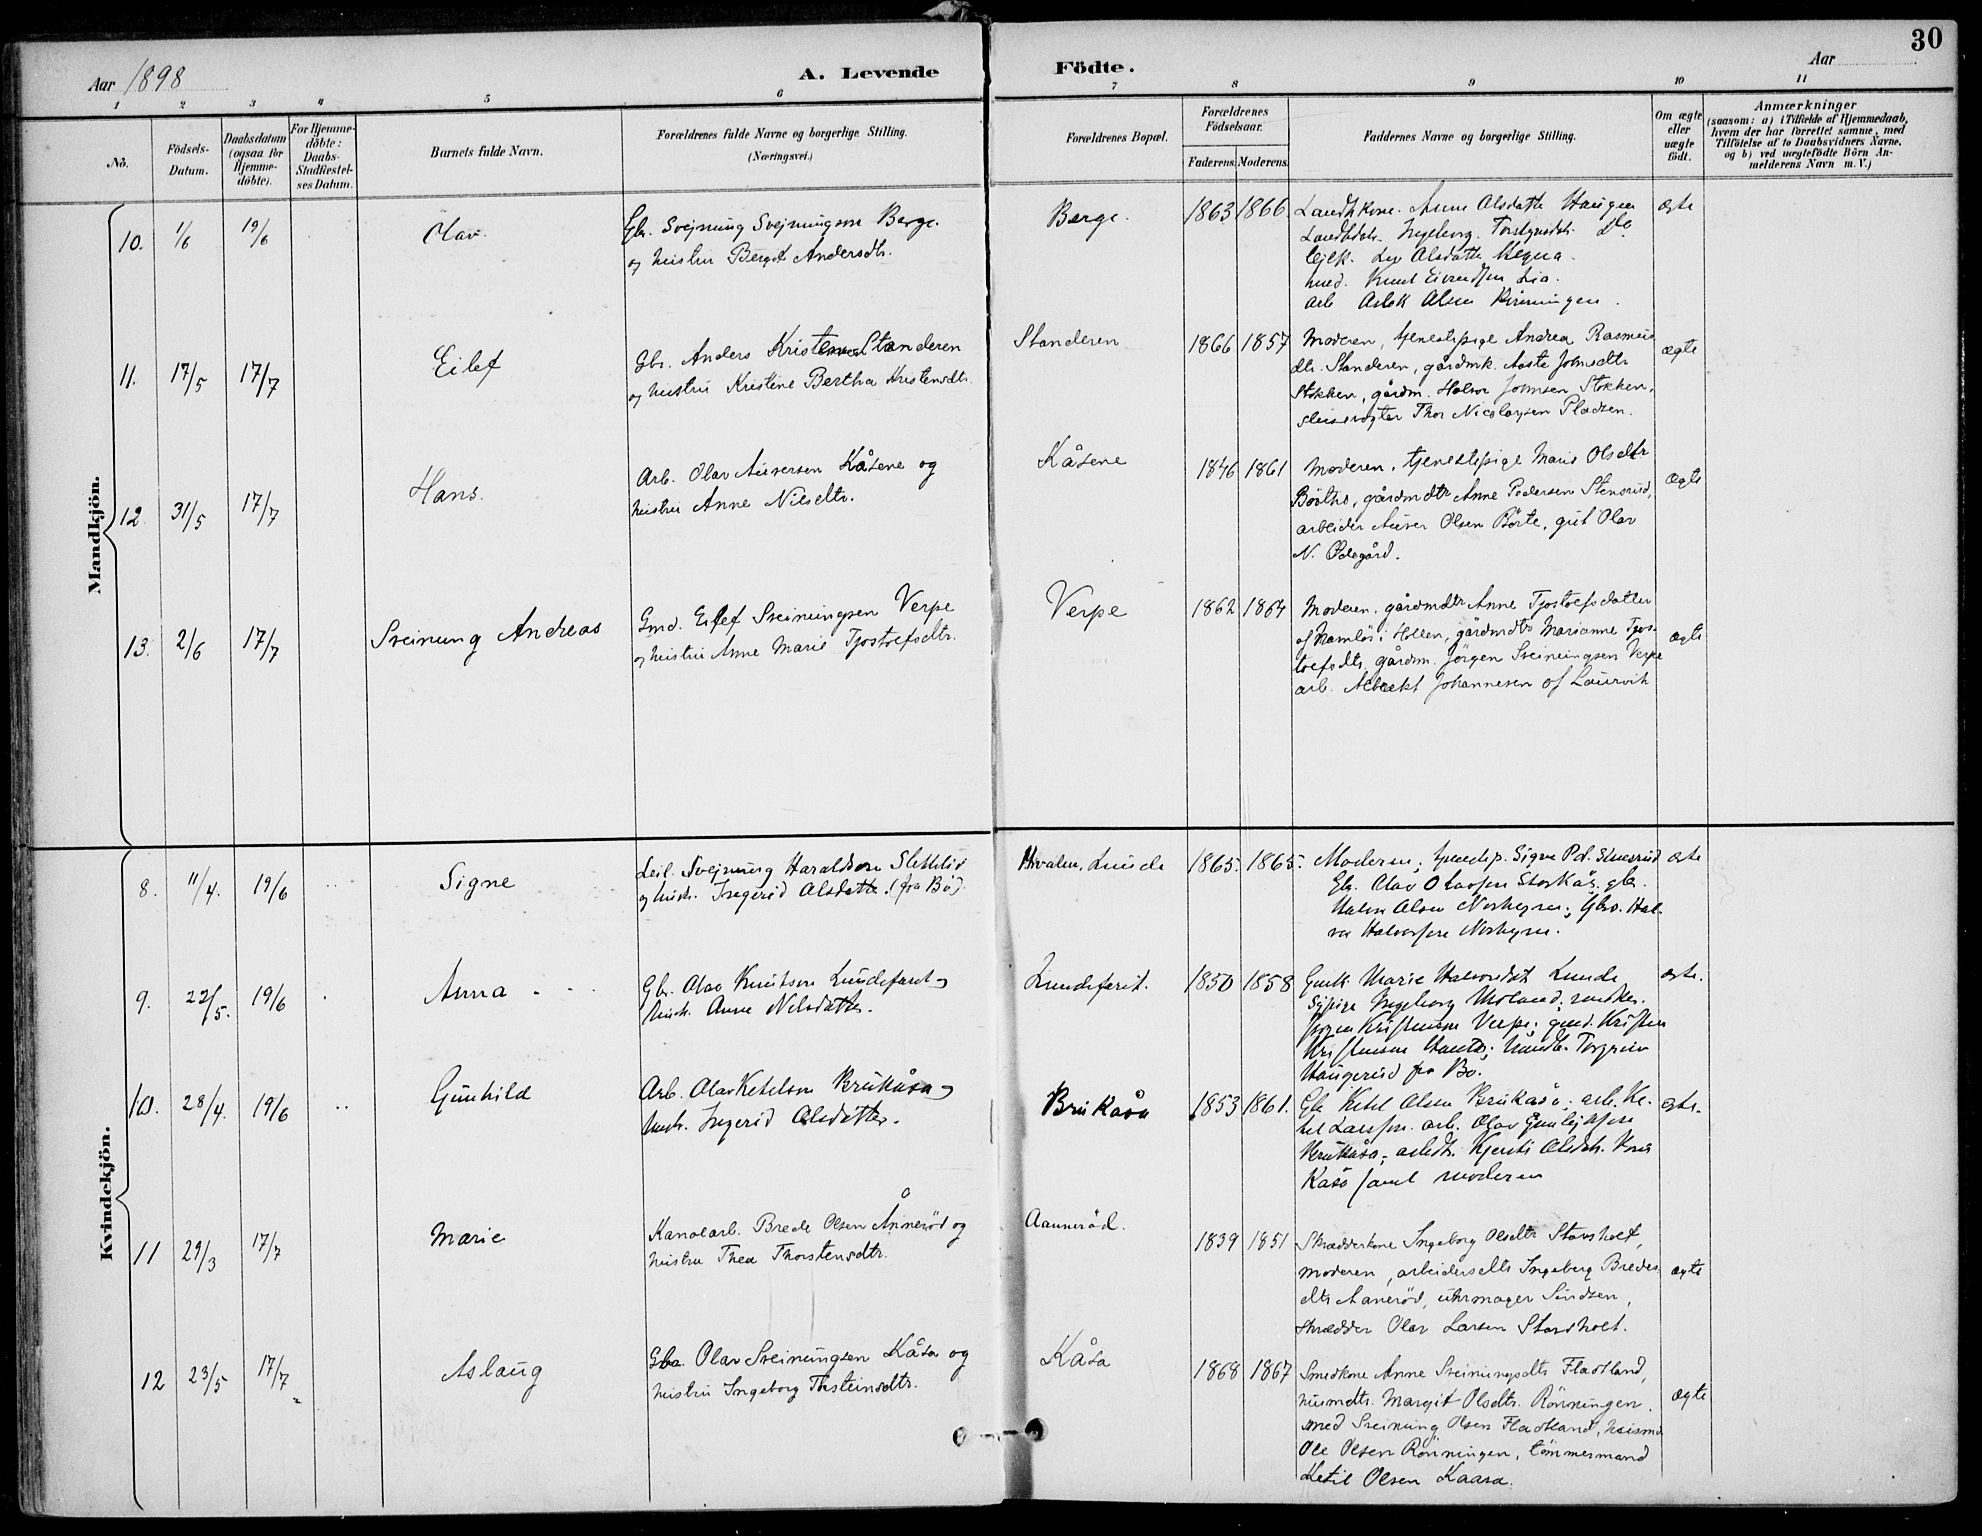 30
Aar 1898
A. Levende
Födte.
Aar
1 2 3 4 5 6 7 8 9 10 11
No.
Födsels-Datum.
Daabsdatum (ogsaa for Hjemme-döbte).
For Hjemme-döbte: Daabs-Stadfæstel-ses Datum.
Barnets fulde Navn.
Forældrenes fulde Navne og borgerlige Stilling.
(Næringsvei.)
Forældrenes Bopæl.
Forældrenes Födselsaar.
Faderens. Moderens.
Faddernes Navne og borgerlige Stilling.
Om ægte eller uægte födt.
Anmærkninger
(saasom: a) i Tilfælde af Hjemmedaab,
hvem der har forrettet samme, med
Tilföielse af to Daabsvidners Navne.
og b) ved uægtefödte Börn An-
melderens Navn m. V.)
Mandkjön.
10. 1/6 19/6 Olav.
Gbr. Svejnung Svejnungsen Berge.
og hustru Bergit Andersdtr.
Berge. 1863 1866
Anne Olsdatter Haugen
Ingeborg Do
Olsdatter
Knut Eivendsen Lia.
arb Aslak Olsen
ægte
11. 17/5 17/7 Eilef
Gbr. Anders Kristensen Standeren
og hustru Kristine Bertha Kristensdtr.
Standeren 1866 1857
Moderen, tjenestepige Andrea Rasmus
dtr. Standeren, gårdmk. Aaste Johnsdtr
Stokken, gårdm. Halvor Johnsen Stokken,
slusevogter Thor Nicolaysen Pladsen.
ægte
12. 31/5 17/7 Hans.
Arb. Olav Auversen Kåsene og
hustru Anne Nilsdtr.
Kåsene 1846 1861
Moderen, tjenestepige Marie Olsdtr
gårdmdtr Anne Pedersen Stensrud,
arbeider Auver Olsen Börte, gut Olav
N. Ödegård.
ægte
13. 2/6 17/7 Sveinung Andreas
Gmd. Eilef Sveinungsen Verpe
og hustru Anne Marie Tjostolfsdtr.
Verpe 1862 1864
Moderen, gårdmdtr Anne Tjostolfsdatter
af Namlös i Hollen, gårdmdtr Marianne Tjos-
tolfsdtr, gårdm. Jörgen Sveinungsen Verpe
arb. Albrekt Johannesen af Laurvik
ægte
Kvindekjön.
8. 11/4. 19/6 Signe
Leil. Svejnung Haraldson Sletteliv
og hustr. Ingerid Olsdatter (fra Bö).
Hvalen, Lunde 1865. 1865.
Moderen; tjenestep. Signe Pd. Stensrud
Gbr. Olav Olavsen Storkås; gbr.
Halvor Olsen Norhegren; Gbr. Hal-
vor Halvorsen Norhegren.
ægte
9. 22/5. 19/6 Anna
Gbr. Olav Knutson Lundefaret og
hustr. Anne Nilsdatter.
Lundefaret. 1850 1858
Gmk. Marie Halvorsdat Lunde
Sypige Ingeborg Moland;
Kristensen Verpe; gmd. Kristen
Kristensen
Haugerud fra Bö.
ægte.
10. 28/4. 19/6 Gunhild
Arb. Olav Ketelson Brukåsa og
hustr. Ingerid Olsdatter.
Brukåsa 1853 1861.
Gbr Ketel Olsen Brukåsa; arb. Ke-
tel Larssen. arb. Olav Gunlejksen
Brukåsa; arbdtr. Kjersti Olsdtr. Bru
Kåsa samt moderen
ægte.
11 29/3 17/7 Marie
Kanalarb. Brede Olsen Ånneröd og
hustru Thea Thorstensdtr.
Aanneröd. 1839 1851
Skrædderkone Ingeborg Olsdtr Stavsholt,
moderen, arbeidersdtr Ingeborg Bredes
dtr Aaneröd, uhrmager Sindsen,
skrædder Olav Larsen Stavsholt.
ægte
12 23/5 17/7 Aslaug
Gbr. Olav Sveinungsen Kåsa og
hustru Ingeborg Thsteinsdtr.
Kåsa 1868 1867
Smedkone Anne Sveinungsdtr Fladtland,
husmdtr. Margit Olsdtr. Rönningen.
smed Sveinung Olsen Fladtland, husmd
Ole Olsen Rönningen, tömmermand
Ketil Olsen Kaasa.
ægte